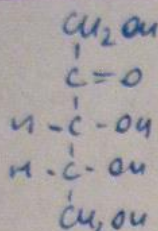 CH2OH
C=O
H-C-OH
H-C-OH
CH2OH